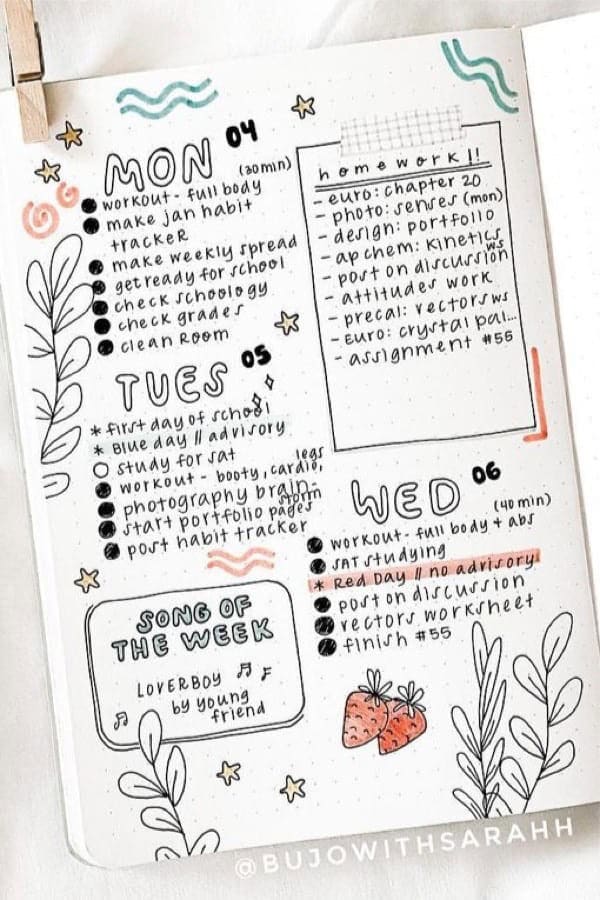 MON 04
(30min)
workout - full body
make jan habit
tracker
make weekly spread
get ready for school
check schoology
check grades
clean room
TUES 05
* first day of school
* Blue day // advisory
study for sat
workout - booty, cardio,
legs
photography brain-
storm
start portfolio pages
post habit tracker
SONG OF
THE WEEK
LOVERBOY
by young
friend
homework!!
- euro: chapter 20
- photo: senses (mon)
- design: portfolio
- ap chem: kinetics
ws
- post on discussion
- attitudes work
- precal: vectors ws
- euro: crystal pal...
- assignment #55
WED 06
(40 min)
workout - full body + abs
SAT studying
* Red Day // no advisory
post on discussion
vectors worksheet
finish #55
@BUJOWITHSARAHH